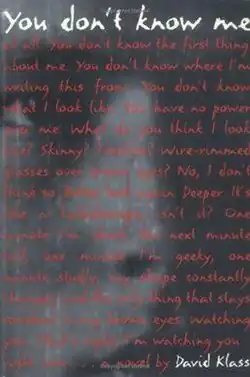 You don't know me
at all. You don't know the first thing
about me. You don't know where I'm
writing this from. You don't know
what I look like. You have no power
over me. What do you think I look
like? Skinny? Freckles? Wire-rimmed
glasses over brown eyes? No, I don't
think so. Better look again. Deeper. It's
like a kaleidoscope, isn't it? One
minute I'm short, the next minute
tall, one minute I'm geeky, one
minute studly, my shape constantly
changes, and the only thing that stays
constant is my brown eyes. Watching
you. That's right, I'm watching you
right now. a novel by David Klass